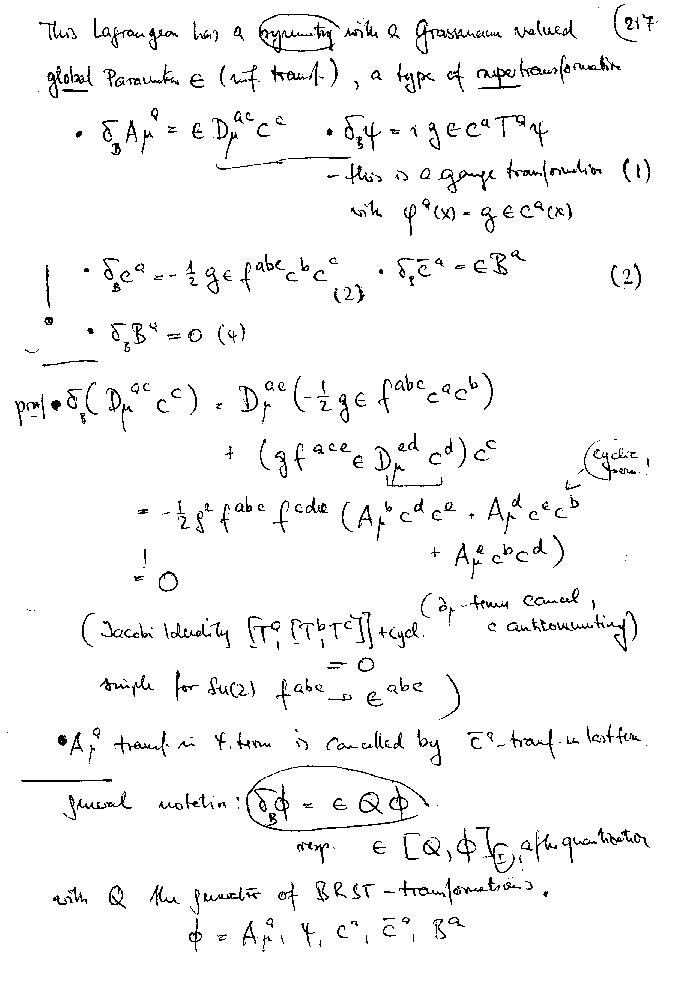 This Lagrangean has a symmetry with a Grassmann valued (217
global Parameter ∈ (inf. transf.), a type of supertransformation
• δ_B A_μ^a = ∈ D_μ^{ac} c^c • δ_B ψ = i g ∈ c^a T^a ψ
- this is a gauge transformation (1)
with φ^a(x) = g ∈ c^a(x)
! • δ_B c^a = -½ g ∈ f^{abc} c^b c^c (2) • δ_B c̄^a = ∈ B^a (2)
• δ_B B^a = 0 (4)
proof • δ_B (D_μ^{ac} c^c) = D_μ^{ac} (-½ g ∈ f^{abc} c^a c^b)
+ (g f^{ace} ∈ D_μ^{ed} c^d) c^c
(cyclic perm.!
= -½ g² f^{abc} f^{cde} (A_μ^b c^d c^e + A_μ^d c^e c^b
+ A_μ^e c^b c^d)
! = 0
(∂_μ-terms cancel,
(Jacobi Identity [T^a, [T^b, T^c]] + cycl. c anticommuting)
= 0
simple for SU(2) f^{abc} → ∈^{abc} )
• A_μ^a transf. in 4. term is cancelled by c̄^a-transf. in last term.
general notation: δ_B φ = ∈ Q φ
resp. ∈ [Q, φ]_±, after quantization
with Q the generator of BRST-transformations.
φ = A_μ^a, ψ, c^a, c̄^a, B^a